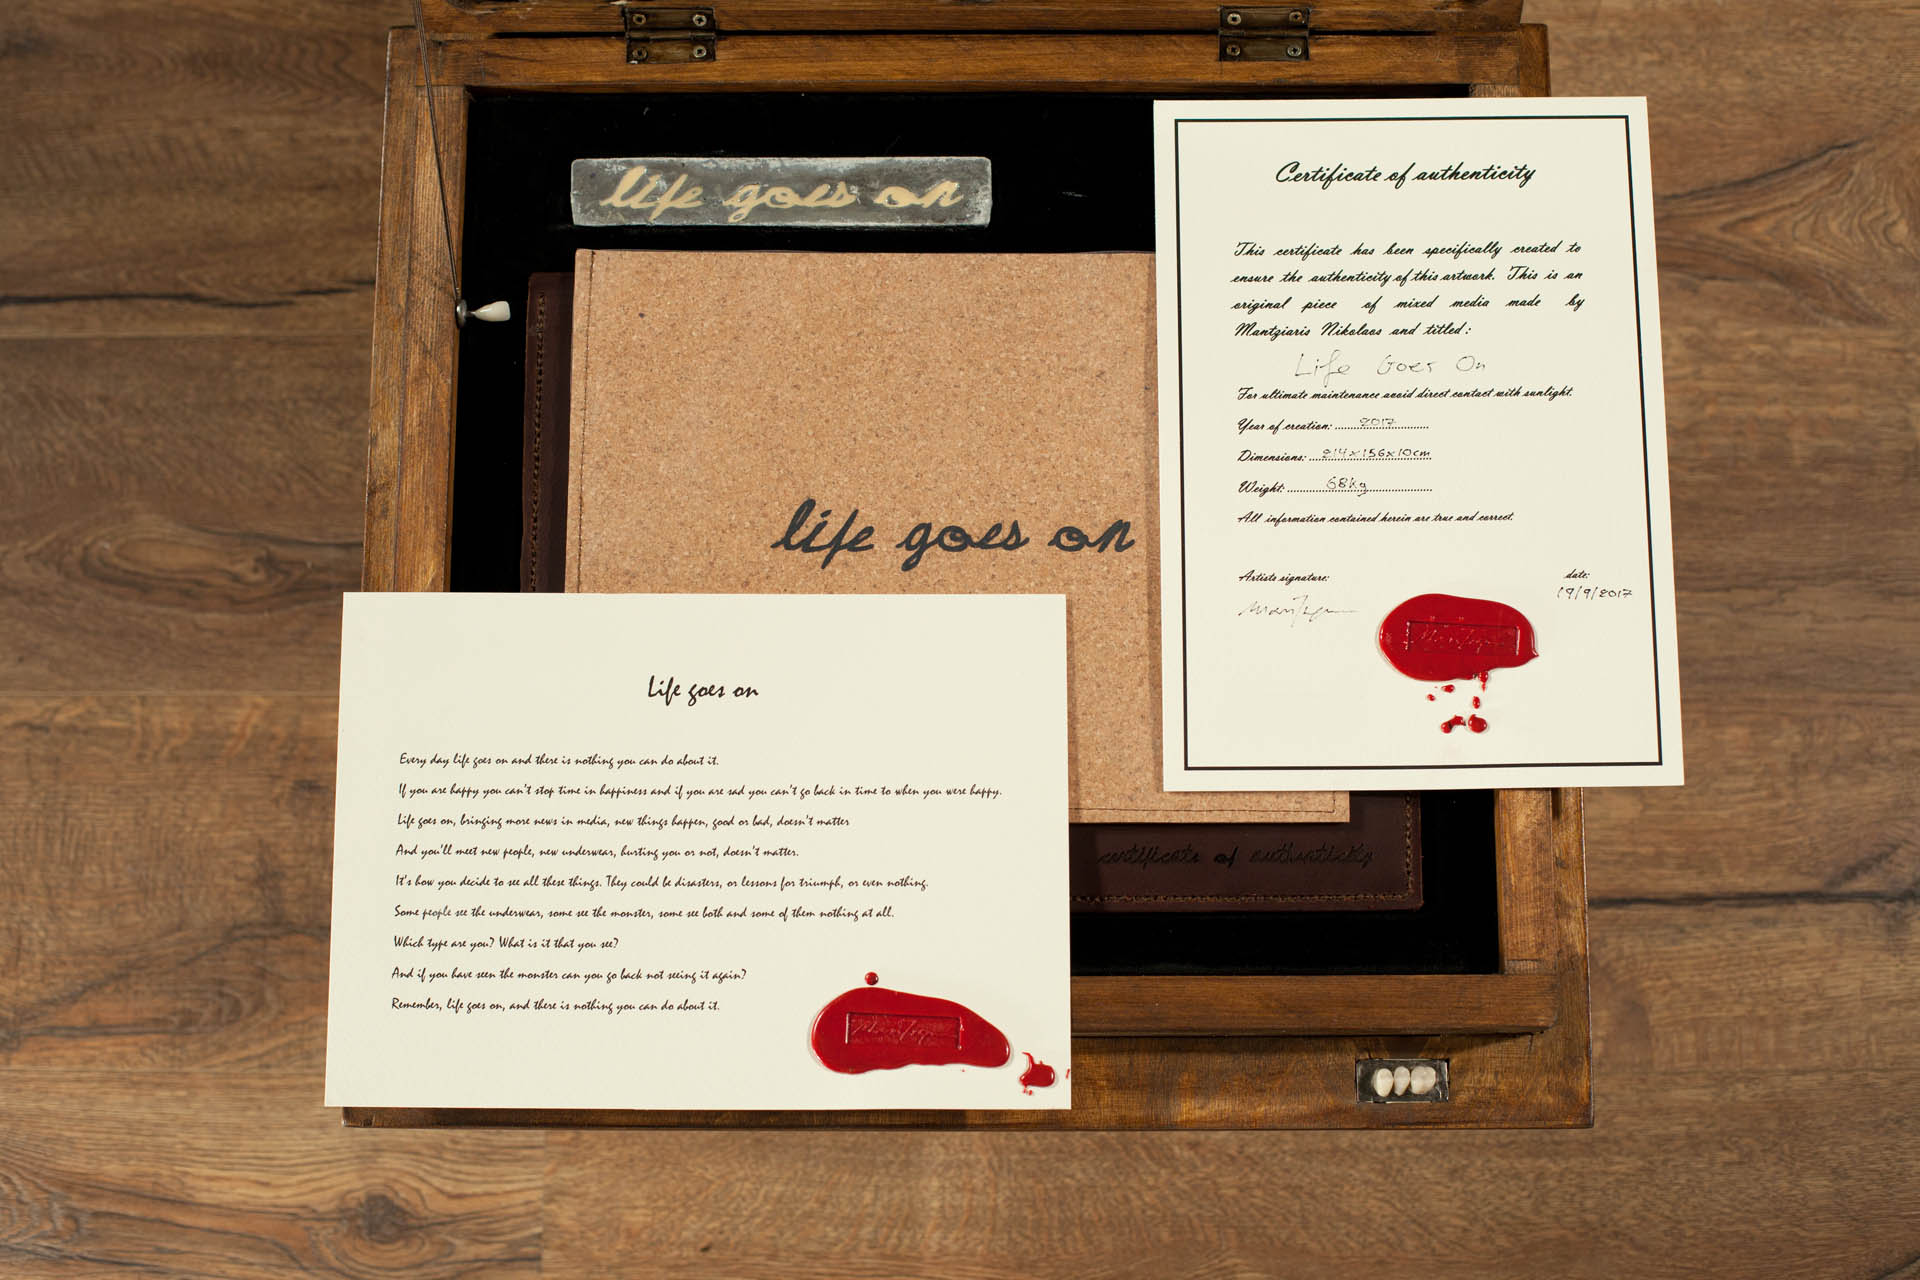 life goes on
life goes on
certificate of authenticity
Certificate of authenticity
This certificate has been specifically created to
ensure the authenticity of this artwork. This is an
original piece of mixed media made by
Mantziaris Nikolaos and titled:
Life Goes On
For ultimate maintenance avoid direct contact with sunlight.
Year of creation: 2017
Dimensions: 214x156x10cm
Weight: 68kg
All information contained herein are true and correct.
Artists signature:
date:
19/9/2017
Life goes on
Every day life goes on and there is nothing you can do about it.
If you are happy you can't stop time in happiness and if you are sad you can't go back in time to when you were happy.
Life goes on, bringing more news in media, new things happen, good or bad, doesn't matter
And you'll meet new people, new underwear, hurting you or not, doesn't matter.
It's how you decide to see all these things. They could be disasters, or lessons for triumph, or even nothing.
Some people see the underwear, some see the monster, some see both and some of them nothing at all.
Which type are you? What is it that you see?
And if you have seen the monster can you go back not seeing it again?
Remember, life goes on, and there is nothing you can do about it.